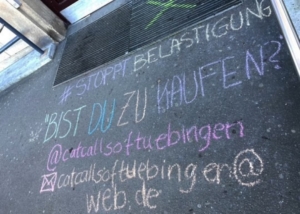 #STOPPT BELÄSTIGUNG
"BIST DU ZU KAUFEN?"
@catcallsoftuebingen
catcallsoftuebingen@
web.de